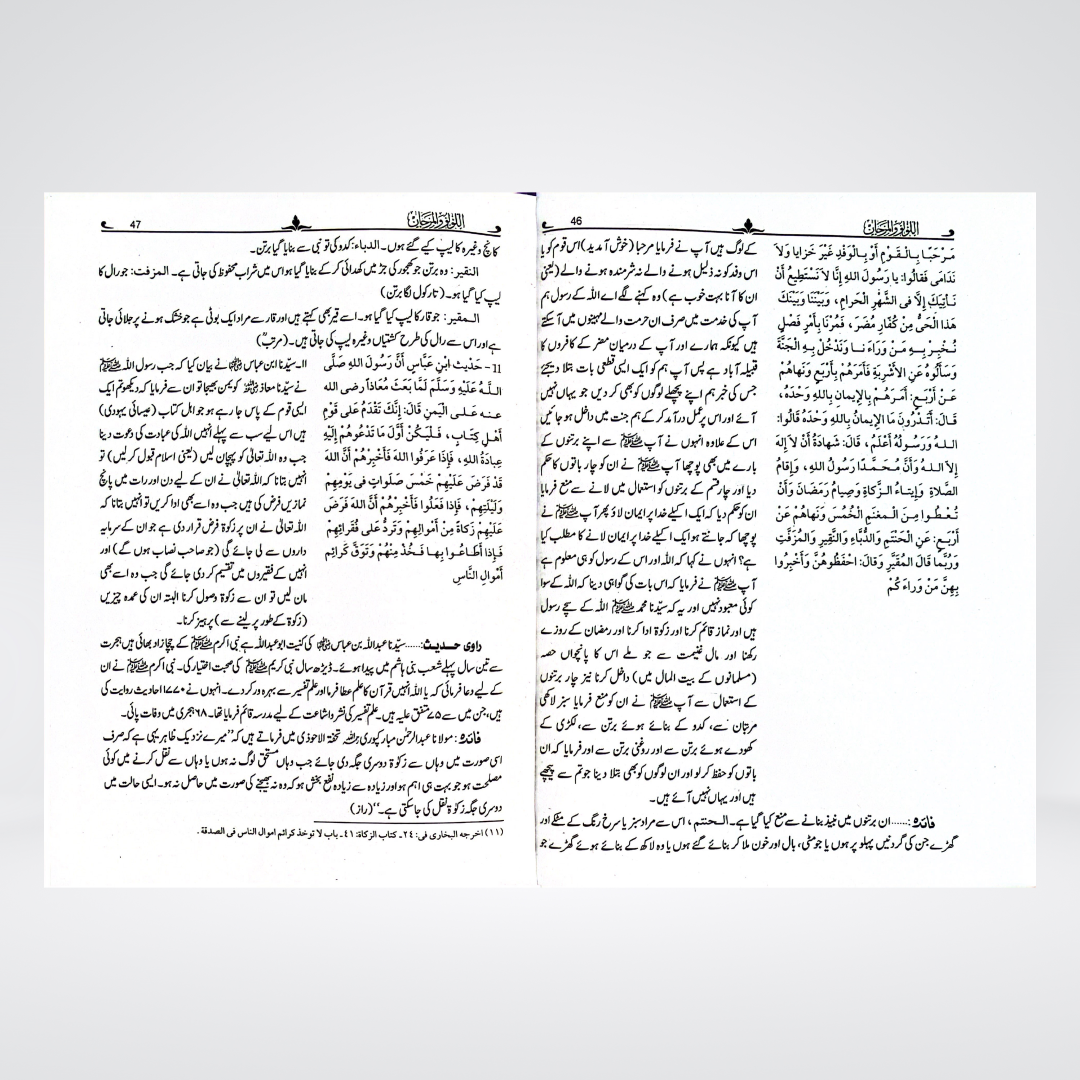 46
اللؤلؤ والمرجان
مَرْحَبًا بِالْقَوْمِ أَوْ بِالْوَفْدِ غَيْرَ خَزَايا وَلاَ
نَدَامَى فَقالُوا: يا رَسُولَ اللهِ إِنَّا لاَ نَسْتَطِيعُ أَنْ
نَأْتِيَكَ إِلاَّ فِى الشَّهْرِ الْحَرَامِ، وَبَيْنَنَا وَبَيْنَكَ
هَذا الْحَىُّ مِنْ كُفَّارِ مُضَرَ، فَمُرْنَا بِأَمْرٍ فَصْلٍ
نُخْبِرْ بِهِ مَنْ وَرَاءَنا وَنَدْخُلْ بِهِ الْجَنَّةَ
وَسَأَلُوهُ عَنِ الأَشْرِبَةِ فَأَمَرَهُمْ بِأَرْبَعٍ وَنَهاهُمْ
عَنْ أَرْبَعٍ: أَمَرَهُمْ بِالإِيمانِ بِاللهِ وَحْدَهُ،
قَالَ: أَتَدْرُونَ ما الإِيمانُ بِاللهِ وَحْدَهُ قَالُوا:
اللهُ وَرَسُولُهُ أَعْلَمُ، قَالَ: شَهادَةُ أَنْ لاَ إِلهَ
إِلاَّ اللهُ وَأَنَّ مُحَمَّدًا رَسُولُ اللهِ، وَإِقامُ
الصَّلاةِ وَإِيتاءُ الزَّكاةِ وَصِيامُ رَمَضَانَ وَأَنْ
تُعْطُوا مِنَ الْمَغْنَمِ الْخُمُسَ وَنَهاهُمْ عَنْ
أَرْبَعٍ: عَنِ الْحَنْتَمِ وَالدُّبَّاءِ وَالنَّقِيرِ وَالمُزَفَّتِ
وَرُبَّما قَالَ المُقَيَّرِ وَقَالَ: احْفَظُوهُنَّ وَأَخْبِرُوا
بِهِنَّ مَنْ وَراءَ كُمْ
کے لوگ ہیں آپ نے فرمایا مرحبا (خوش آمدید) اس قوم کو یا
اس وفد کو نہ ذلیل ہونے والے نہ شرمندہ ہونے والے (یعنی
ان کا آنا بہت خوب ہے) وہ کہنے لگے اے اللہ کے رسول ہم
آپ کی خدمت میں صرف ان حرمت والے مہینوں میں آ سکتے
ہیں کیونکہ ہمارے اور آپ کے درمیان مضر کے کافروں کا
قبیلہ آباد ہے پس آپ ہم کو ایک ایسی قطعی بات بتلا دیجئے
جس کی خبر ہم اپنے پچھلے لوگوں کو بھی کر دیں جو یہاں نہیں
آئے اور اس پر عمل درآمد کر کے ہم جنت میں داخل ہو جائیں
اس کے علاوہ انہوں نے آپ ﷺ سے اپنے برتنوں کے
بارے میں بھی پوچھا آپ ﷺ نے ان کو چار باتوں کا حکم
دیا اور چار قسم کے برتنوں کو استعمال میں لانے سے منع فرمایا
ان کو حکم دیا کہ ایک اکیلے خدا پر ایمان لاؤ پھر آپ ﷺ نے
پوچھا کہ جانتے ہو ایک اکیلے خدا پر ایمان لانے کا مطلب کیا
ہے؟ انہوں نے کہا کہ اللہ اور اس کے رسول کو ہی معلوم ہے
آپ ﷺ نے فرمایا کہ اس بات کی گواہی دینا کہ اللہ کے سوا
کوئی معبود نہیں اور یہ کہ سیّدنا محمد ﷺ اللہ کے سچے رسول
ہیں اور نماز قائم کرنا اور زکوۃ ادا کرنا اور رمضان کے روزے
رکھنا اور مال غنیمت سے جو ملے اس کا پانچواں حصہ
(مسلمانوں کے بیت المال میں) داخل کرنا نیز چار برتنوں
کے استعمال سے آپ ﷺ نے ان کو منع فرمایا سبز لاکھی
مرتبان سے، کدو کے بنائے ہوئے برتن سے، لکڑی کے
کھودے ہوئے برتن سے اور روغنی برتن سے اور فرمایا کہ ان
باتوں کو حفظ کر لو اور ان لوگوں کو بھی بتلا دینا جو تم سے پیچھے
ہیں اور یہاں نہیں آئے ہیں۔
فائدہ:......ان برتنوں میں نبیذ بنانے سے منع کیا گیا ہے۔ الحنتم ، اس سے مراد سبز یا سرخ رنگ کے مٹکے اور
گھڑے جن کی گردنیں پہلو پر ہوں یا جو مٹی، بال اور خون ملا کر بنائے گئے ہوں یا وہ لاکھ کے بنائے ہوئے گھڑے جو
47
اللؤلؤ والمرجان
کانچ وغیرہ کا لیپ کیے گئے ہوں۔ الدباء: کدو کی تونبی سے بنایا گیا برتن۔
النقیر: وہ برتن جو کھجور کی جڑ میں کھدائی کر کے بنایا گیا ہو اس میں شراب محفوظ کی جاتی ہے۔ المزفت: جو رال کا
لیپ کیا گیا ہو۔ (تارکول لگا برتن)
المقیر: جو قار کا لیپ کیا گیا ہو۔ اسے قیر بھی کہتے ہیں اور قار سے مراد ایک بوٹی ہے جو خشک ہونے پر جلائی جاتی
ہے اور اس سے رال کی طرح کشتیاں وغیرہ لیپ کی جاتی ہیں۔ (مرتب)
11- حَدِيثُ ابْنِ عَبَّاسٍ أَنَّ رَسُولَ اللهِ صَلَّى
اللهُ عَلَيْهِ وَسَلَّمَ لَمَّا بَعَثَ مُعَاذاً رضى الله
عنه عَلى الْيَمَنِ قَالَ: إِنَّكَ تَقْدَمُ عَلى قَوْمٍ
أَهْلِ كِتابٍ، فَلْيَكُنْ أَوَّلَ مَا تَدْعُوهُمْ إِلَيْهِ
عِبادَةُ اللهِ، فَإِذا عَرَفُوا اللهَ فَأَخْبِرْهُمْ أَنَّ اللهَ
قَدْ فَرَضَ عَلَيْهِمْ خَمْسَ صَلَوَاتٍ فِى يَوْمِهِمْ
وَلَيْلَتِهِمْ، فَإِذا فَعَلُوا فَأَخْبِرْهُمْ أَنَّ اللهَ فَرَضَ
عَلَيْهِمْ زَكاةً مِنْ أَمْوالِهِمْ وَتُرَدُّ عَلى فُقَرائِهِمْ
فَإِذا أَطَاعُوا بِها فَخُذْ مِنْهُمْ وَتَوَقَّ كَرائِمَ
أَمْوالِ النَّاسِ
۱۱۔ سیّدنا ابن عباس رضی اللہ عنہ نے بیان کیا کہ جب رسول اللہ ﷺ
نے سیّدنا معاذ رضی اللہ عنہ کو یمن بھیجا تو ان سے فرمایا کہ دیکھو تم ایک
ایسی قوم کے پاس جا رہے ہو جو اہل کتاب (عیسائی یہودی)
ہیں اس لیے سب سے پہلے انہیں اللہ کی عبادت کی دعوت دینا
جب وہ اللہ تعالیٰ کو پہچان لیں (یعنی اسلام قبول کر لیں) تو
انہیں بتانا کہ اللہ تعالیٰ نے ان کے لیے دن اور رات میں پانچ
نمازیں فرض کی ہیں جب وہ اسے بھی ادا کریں تو انہیں بتانا کہ
اللہ تعالیٰ نے ان پر زکوۃ فرض قرار دی ہے جو ان کے سرمایہ
داروں سے لی جائے گی (جو صاحب نصاب ہوں گے) اور
انہیں کے فقیروں میں تقسیم کر دی جائے گی جب وہ اسے بھی
مان لیں تو ان سے زکوۃ وصول کرنا البتہ ان کی عمدہ چیزیں
(زکوۃ کے طور پر لینے سے) پرہیز کرنا۔
راوی حدیث:......سیّدنا عبداللہ بن عباس رضی اللہ عنہ کی کنیت ابو عبداللہ ہے نبی اکرم ﷺ کے چچا زاد بھائی ہیں ہجرت
سے تین سال پہلے شعب بنی ہاشم میں پیدا ہوئے۔ ڈیڑھ سال نبی کریم ﷺ کی صحبت اختیار کی۔ نبی اکرم ﷺ نے ان
کے لیے دعا فرمائی کہ یا اللہ انہیں قرآن کا علم عطا فرما اور علم تفسیر سے بہرہ ور کر دے۔ انہوں نے ۱۷۷۰ احادیث روایت کی
ہیں، جن میں سے ۷۵ متفق علیہ ہیں۔ علم تفسیر کی نشر و اشاعت کے لیے مدرسہ قائم فرمایا تھا۔ ۶۸ ہجری میں وفات پائی۔
فائدہ: مولانا عبدالرحمٰن مبارکپوری رحمہ اللہ تحفۃ الاحوذی میں فرماتے ہیں کہ ’’میرے نزدیک ظاہر یہی ہے کہ صرف
اسی صورت میں وہاں سے زکوۃ دوسری جگہ دی جائے جب وہاں مستحق لوگ نہ ہوں یا وہاں سے نقل کرنے میں کوئی
مصلحت ہو جو بہت ہی اہم ہو اور زیادہ سے زیادہ نفع بخش ہو کہ وہ نہ بھیجنے کی صورت میں حاصل نہ ہو۔ ایسی حالت میں
دوسری جگہ زکوۃ نقل کی جا سکتی ہے۔‘‘ (راز)
(۱۱) اخرجه البخاری فی: ۲٤۔ كتاب الزكاة: ٤۱۔ باب لا تؤخذ كرائم اموال الناس فی الصدقة .